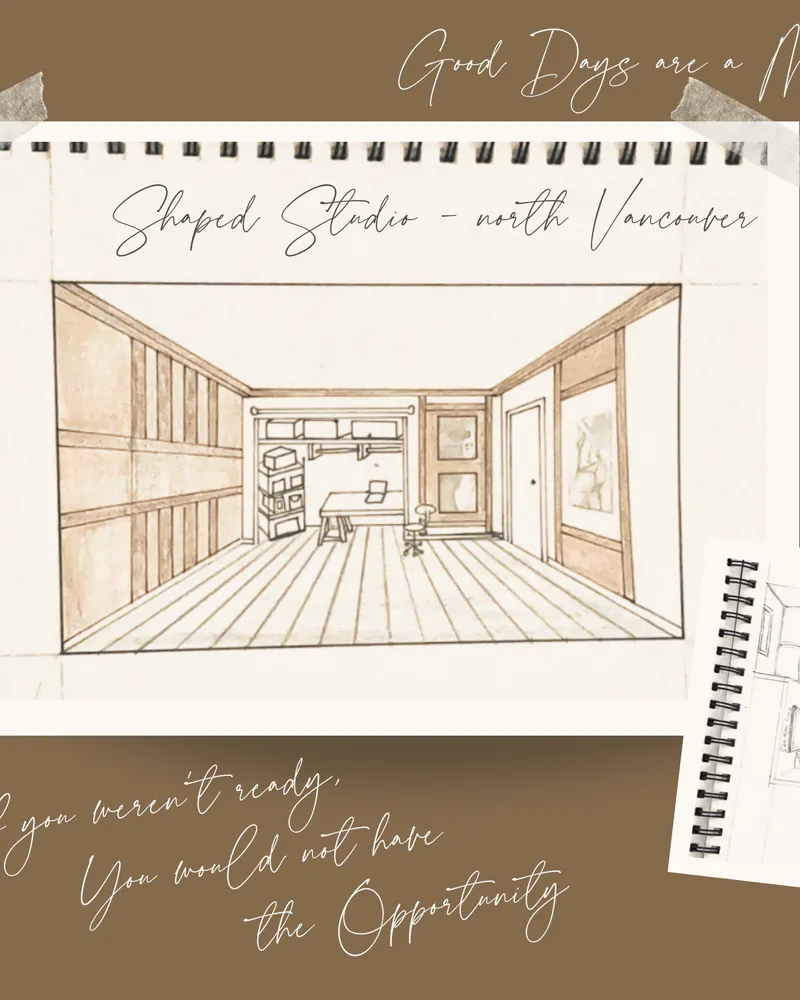 Good Days are a
Shaped Studio - north Vancouver
you weren't ready,
You would not have
the Opportunity